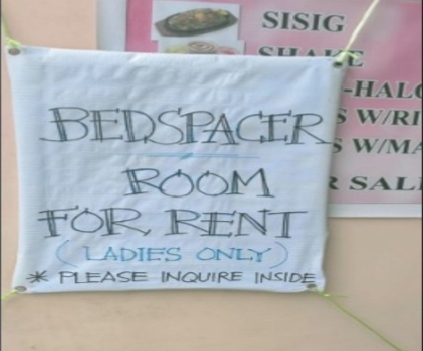 SISIG
SHAKE
-HALO
S W/RI
S W/MA
R SAL
BEDSPACER
ROOM
FOR RENT
(LADIES ONLY)
* PLEASE INQUIRE INSIDE